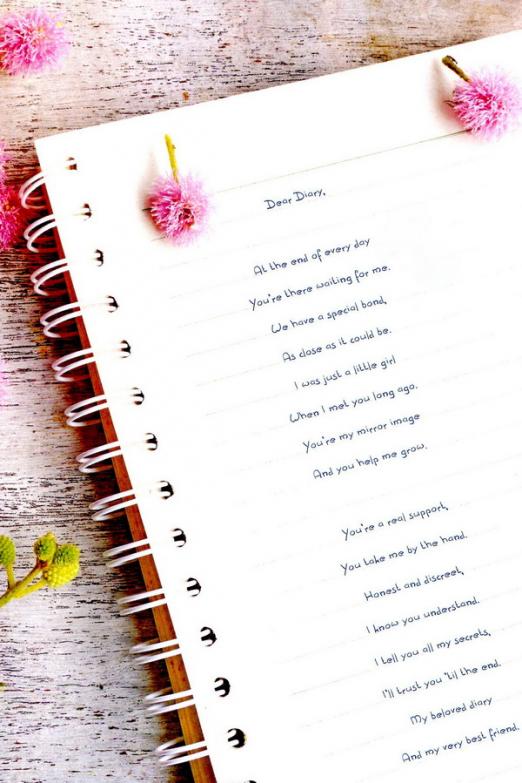 Dear Diary,
At the end of every day
You're there waiting for me.
We have a special bond,
As close as it could be.
I was just a little girl
When I met you long ago.
You're my mirror image
And you help me grow.
You're a real support,
You take me by the hand.
Honest and discreet,
I know you understand.
I tell you all my secrets,
I'll trust you 'til the end.
My beloved diary
And my very best friend.